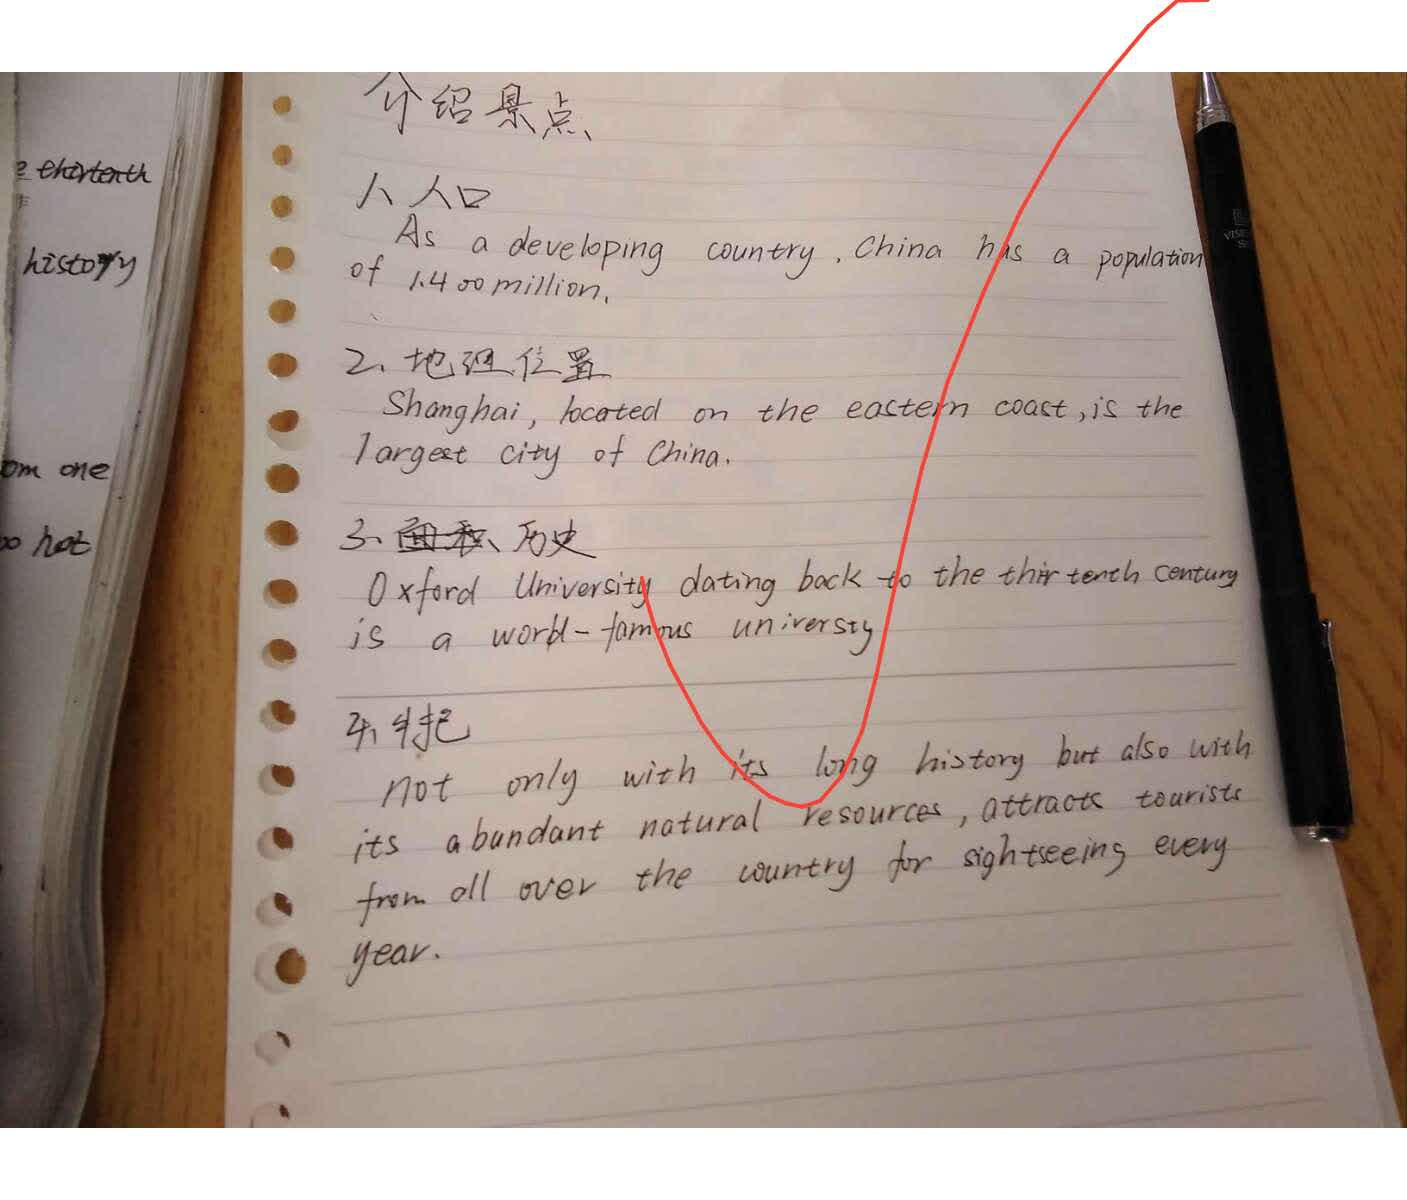 介绍景点
thirtenth
history
om one
oo hot
1、人口
As a developing country, China has a population
of 1.400 million.
2、地理位置
Shanghai, located on the eastern coast, is the
largest city of China.
3、面积、历史
Oxford University dating back to the thirtenth century
is a world-famous universty
4、
not only with its long history but also with
its abundant natural resources, attracts tourists
from all over the country for sightseeing every
year.